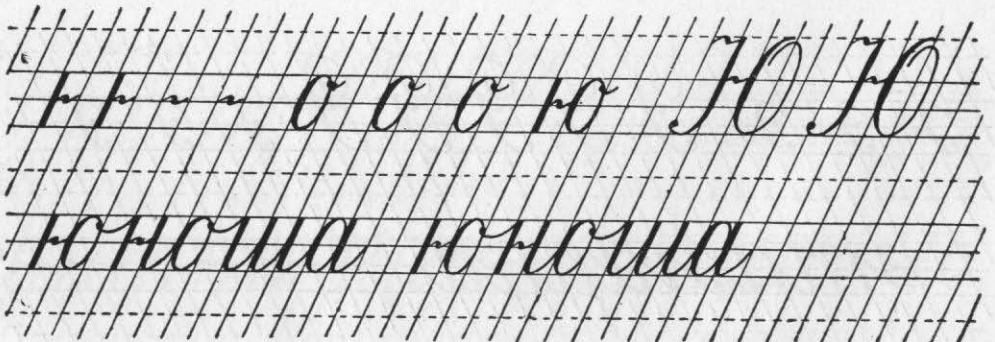 о о о ю Ю Ю
юноша юноша